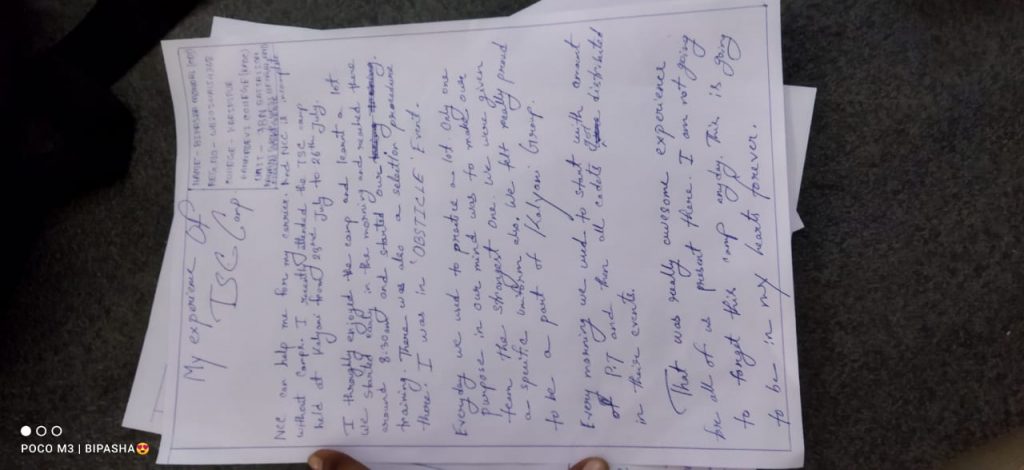 My experience OF
TSC Camp
NAME - BIPASHA MONDAL
COLLEGE - KARIMPUR
PANNADEVI COLLEGE
NCC can help me for my carrier. And NCC is incomplete
without Camph. I recently attended the TSC camp
held at Kalyani from July to 26th July.
I thoroughly enjoyed the camp and learnt a lot.
We started early in the morning and reached there
around 8:30am and started our
training. There was also a selection
there. I was in 'OBSTICLE' Event.
Everyday we used to practice a lot. Only one
purpose in our mind was to make our
team the strongest one. We were given
a specific uniform also. We felt really proud
to be a part of 'Kalyani' Group.
Every morning we used to start with amount
of PT and then all cadets got distributed
in there events.
That was really awesome experience
for all of us present there. I am not going
to forget this camp anyday. This is going
to be in my hearts forever.
POCO M3 | BIPASHA😍